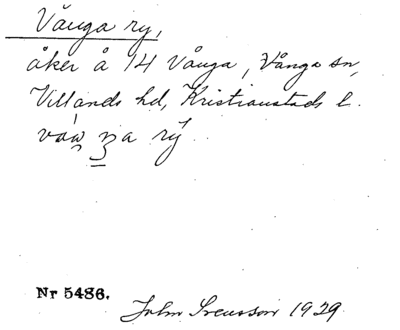 Vånga ry,
åker å 14 Vånga, Vånga sn,
Villands hd, Kristianstads l.
ry
Nr 5486.
John Svensson 1929